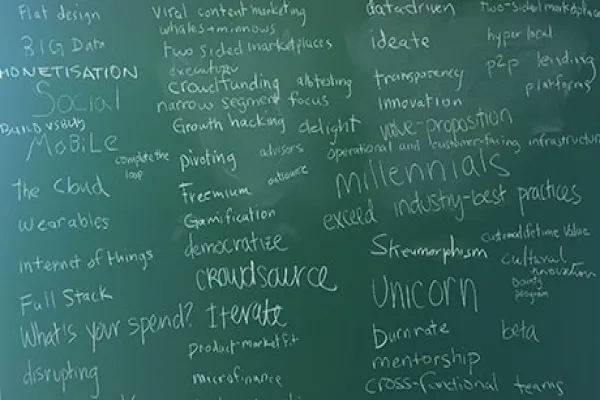 Flat design
BIG Data
MONETISATION
Social
BUILD VS BUY
MOBILE
complete the
loop
the Cloud
Wearables
Internet of things
Full Stack
What's your spend? Iterate
disrupting
Viral content marketing
whales + minnows
two sided marketplaces
crowdfunding a/b testing
narrow segment focus
Growth hacking delight
pivoting advisors
Freemium outsource
Gamification
democratize
crowdsource
product-market fit
microfinance
data driven
ideate
transparency
Innovation
value-proposition
operational and customer-facing infrastructure
millennials
exceed industry-best practices
Skeumorphism
Unicorn
Burnrate
mentorship
cross-functional teams
two-sided marketplace
hyper local
p2p lending
platforms
customer lifetime value
cultural
innovation
Bounty
program
beta